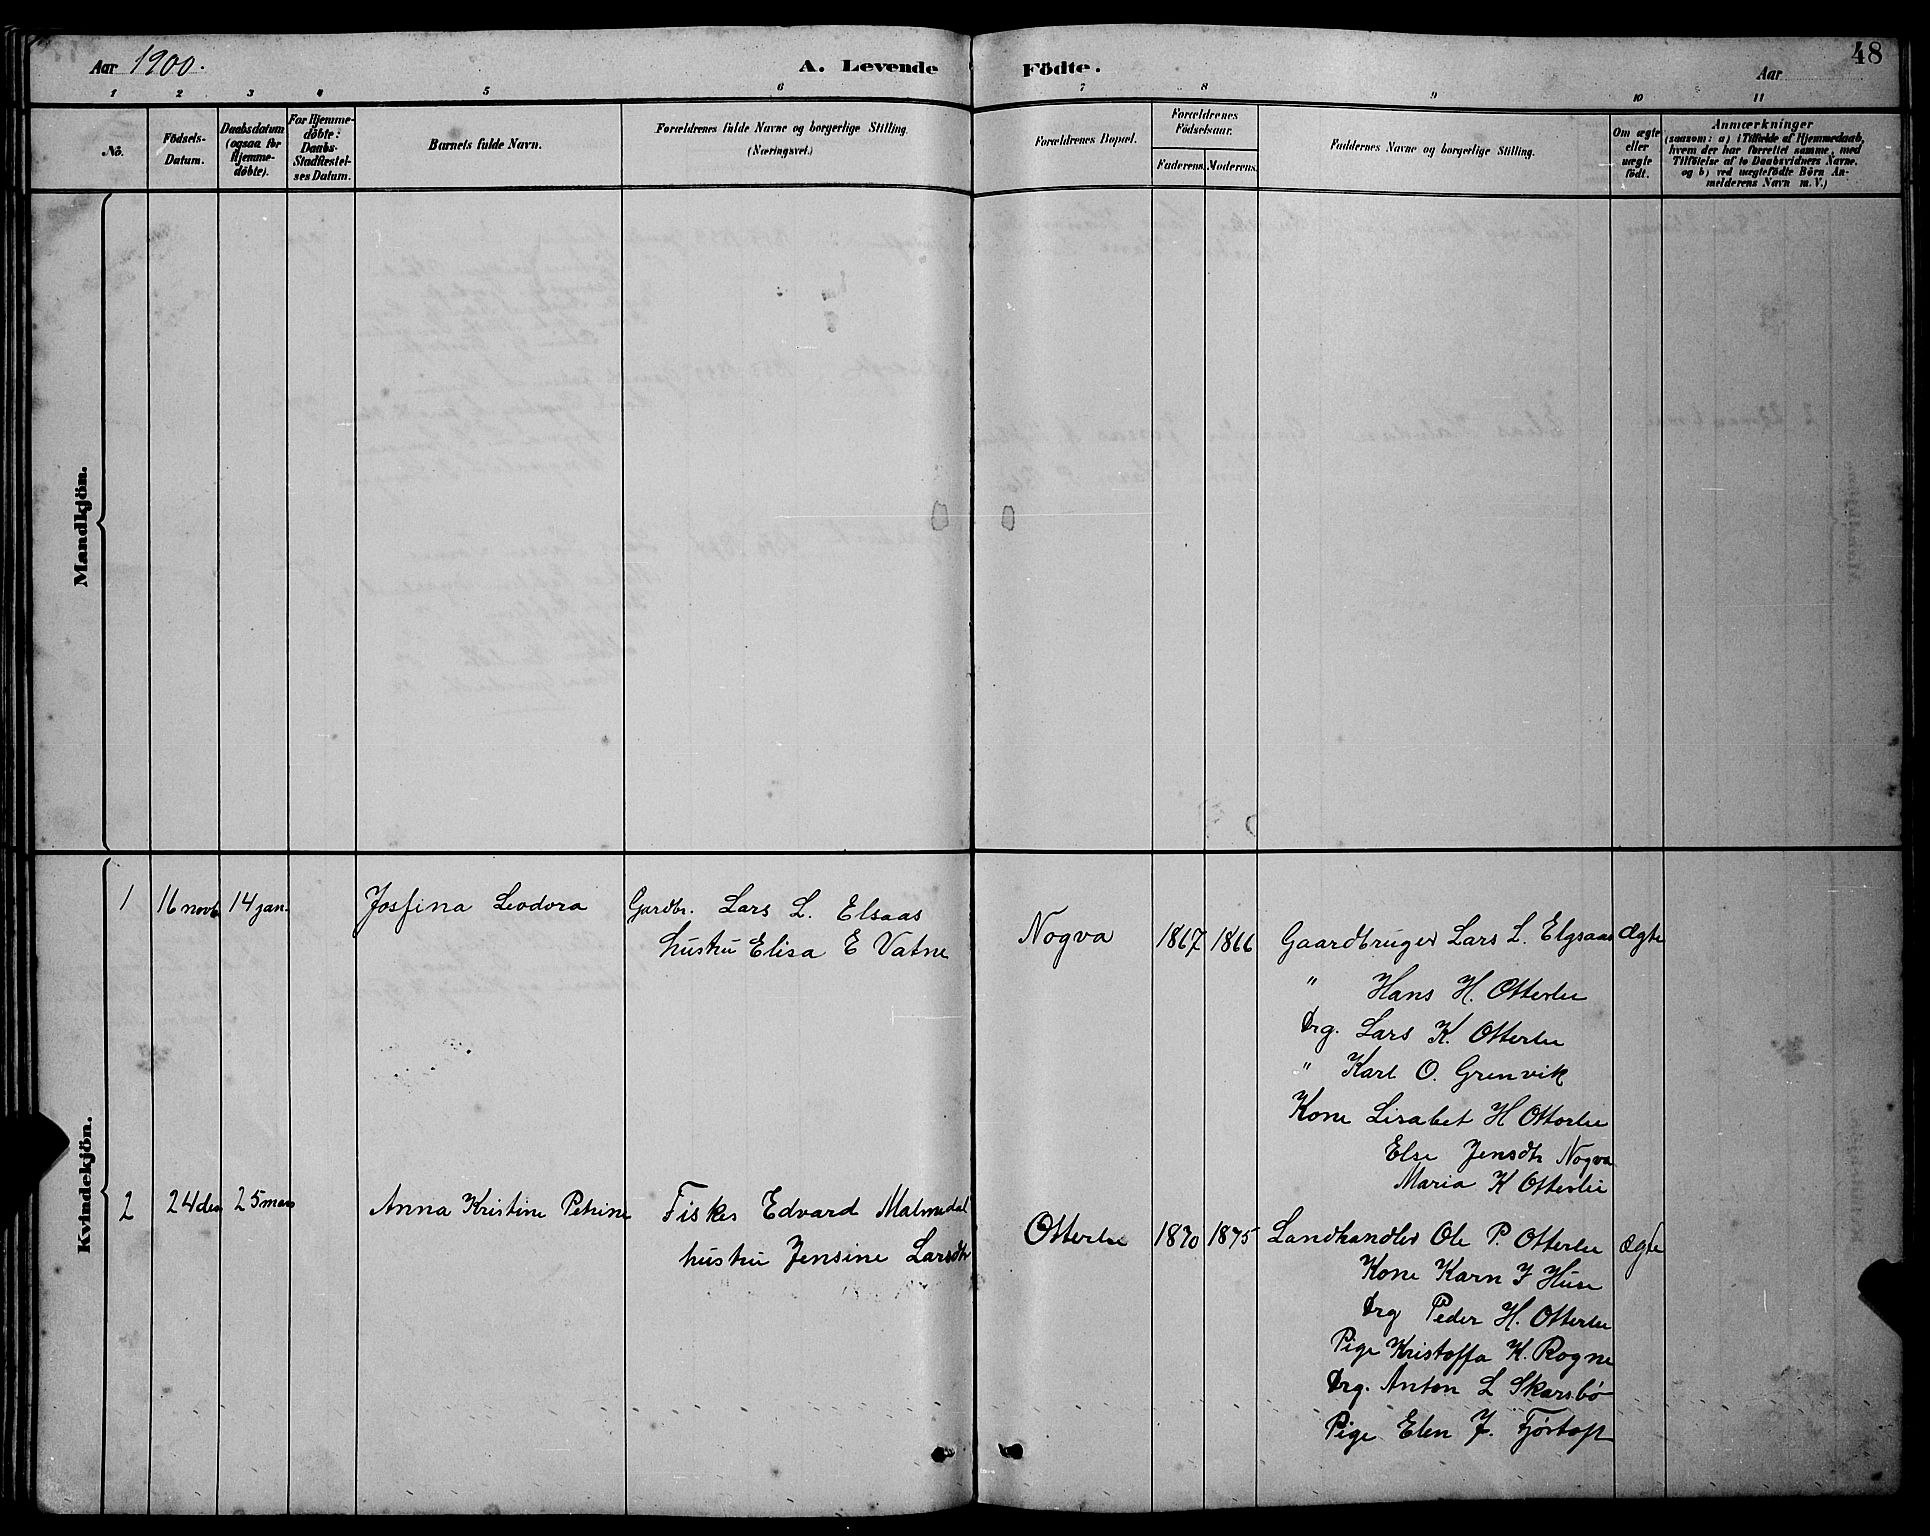 Aar 1900.
A. Levende Födte.
Aar
48
1 2 3 4 5 6 7 8 9 10 11
No.
Födsels-
Datum.
Daabsdatum
(ogsaa for
Hjemme-
döbte).
For Hjemme-
döbte:
Daabs-
Stadfæstel-
ses Datum.
Barnets fulde Navn.
Forældrenes fulde Navne og borgerlige Stilling.
(Næringsvei.)
Forældrenes Bopæl.
Forældrenes
Födselsaar.
Faderens. Moderens.
Faddernes Navne og borgerlige Stilling.
Om ægte
eller
uægte
födt.
Anmærkninger
(saasom: a) i Tilfælde af Hjemmedaab,
hvem der har forrettet samme, med
Tilföielse af to Daabsvidners Navne.
og b) ved uægtefödte Börn An-
melderens Navn m. V.)
Mandkjön.
Kvindekjön.
1 16 novb 14 jan. Josfina Leodora Gardbr. Lars L. Elsaas
hustru Elisa E Vatne
Nogva 1867 1866 Gaardbruger Lars L. Elgsaas ægte
" Hans H. Otterlei
Drg. Lars K. Otterlei
" Karl O. Grenvik
Kone Lisabet H Otterlei
Else Jensdtr Nogva
Maria K Otterlei
2 24 des 25 mars Anna Kristine Petrine Fisker Edvard Malmedal
hustru Jensine Larsdtr
Otterlei 1870 1875 Landhandler Ole P. Otterlei ægte
Kone Karn J Huse
Drg Peder H. Otterlei
Pige Kristoffa K. Rogne
Drg. Anton L Skarsbø
Pige Elen J. Fjørtoft